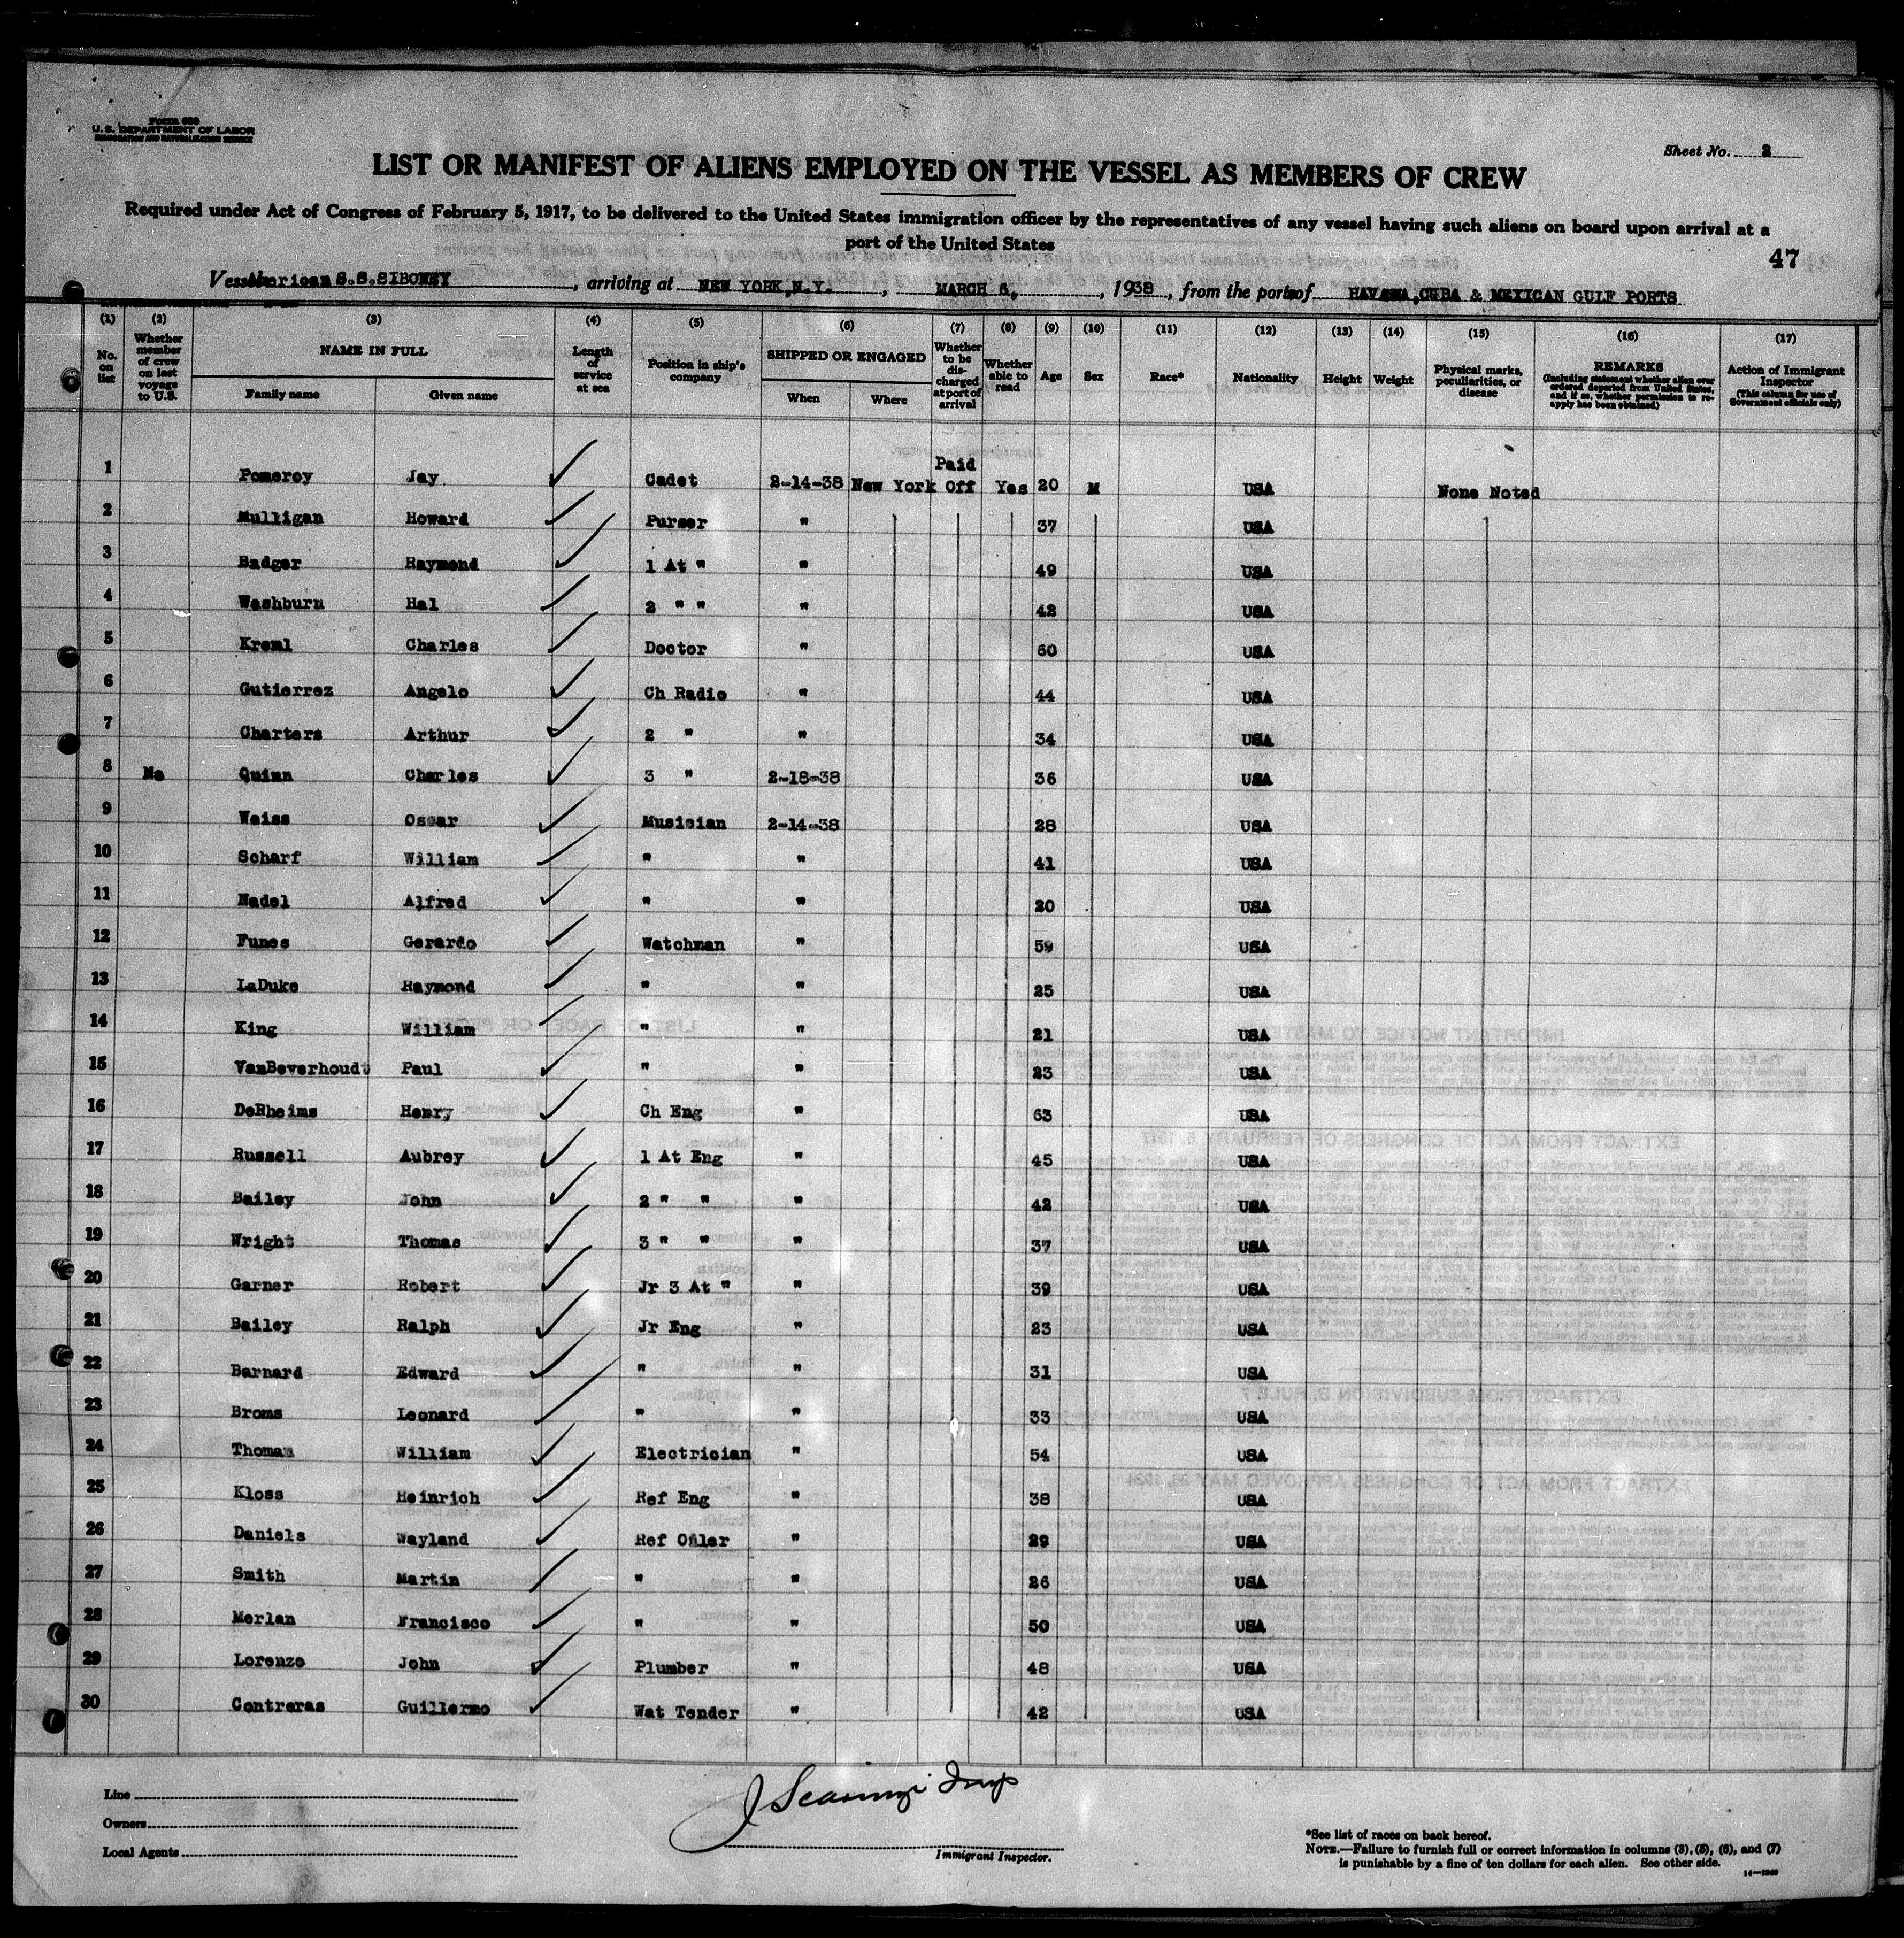 Form 680
U. S. DEPARTMENT OF LABOR
IMMIGRATION AND NATURALIZATION SERVICE
Sheet No. 2
LIST OR MANIFEST OF ALIENS EMPLOYED ON THE VESSEL AS MEMBERS OF CREW
Required under Act of Congress of February 5, 1917, to be delivered to the United States immigration officer by the representatives of any vessel having such aliens on board upon arrival at a
port of the United States
47
Vessel American S.S.SIBONEY, arriving at NEW YORK,N.Y., MARCH 6, 1938, from the ports of HAVANA,CUBA & MEXICAN GULF PORTS
(1) (2) (3) (4) (5) (6) (7) (8) (9) (10) (11) (12) (13) (14) (15) (16) (17)
No. on list Whether member of crew on last voyage to U.S. NAME IN FULL Family name Given name Length of service at sea Position in ship's company SHIPPED OR ENGAGED When Where Whether to be discharged at port of arrival Whether able to read Age Sex Race* Nationality Height Weight Physical marks, peculiarities, or disease REMARKS (Including statement whether alien ever ordered deported from United States, and if so, whether permission to reapply has been obtained) Action of Immigrant Inspector (This column for use of Government officials only)
1 Pomeroy Jay Cadet 2-14-38 New York Paid Off Yes 20 M USA None Noted
2 Mulligan Howard Purser " 37 USA
3 Badger Raymond 1 At " " 49 USA
4 Washburn Hal 2 " " " 42 USA
5 Kreml Charles Doctor " 60 USA
6 Gutierrez Angelo Ch Radio " 44 USA
7 Charters Arthur 2 " " 34 USA
8 No Quinn Charles 3 " 2-18-38 36 USA
9 Weiss Oscar Musician 2-14-38 28 USA
10 Scharf William " " 41 USA
11 Nadel Alfred " " 20 USA
12 Funes Gerardo Watchman " 59 USA
13 LaDuke Raymond " " 25 USA
14 King William " " 21 USA
15 VanBeverhoudt Paul " " 23 USA
16 DeRheims Henry Ch Eng " 63 USA
17 Russell Aubrey 1 At Eng " 45 USA
18 Bailey John 2 " " " 42 USA
19 Wright Thomas 3 " " " 37 USA
20 Garner Robert Jr 3 At " " 39 USA
21 Bailey Ralph Jr Eng " 23 USA
22 Barnard Edward " " 31 USA
23 Broms Leonard " " 33 USA
24 Thoman William Electrician " 54 USA
25 Kloss Heinrich Ref Eng " 38 USA
26 Daniels Wayland Ref Oiler " 29 USA
27 Smith Martin " " 26 USA
28 Merlan Francisco " " 50 USA
29 Lorenzo John Plumber " 48 USA
30 Contreras Guillermo Wat Tender " 42 USA
Line
Owners
Local Agents
Immigrant Inspector.
*See list of races on back hereof.
NOTE.—Failure to furnish full or correct information in columns (3), (5), (6), and (7)
is punishable by a fine of ten dollars for each alien. See other side.